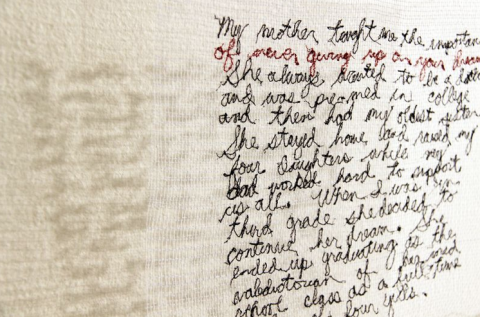 My mother taught me the importan
of never giving up on your dream
She always wanted to be a doc
and was premed in college
and then had my oldest sister
She stayed home and raised my
four daughters while my
dad worked hard to support
us all. When I was in
third grade she decided to
continue her dream. She
ended up graduating as the
valedictorian of her med
school class as a full time
four girls.